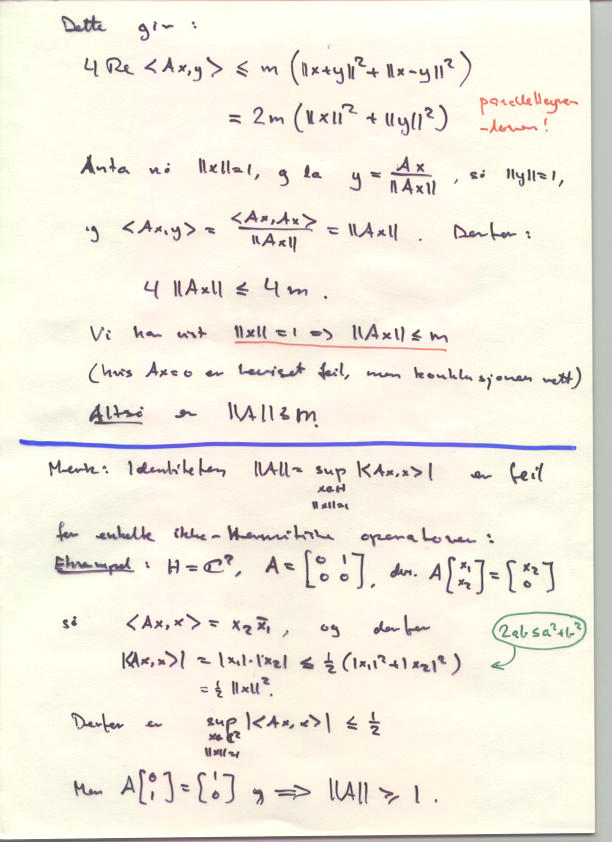 Dette gir:
4 Re <Ax,y> ≤ m (||x+y||² + ||x-y||²)
= 2m (||x||² + ||y||²)
parallellogram
-loven!
Anta nå ||x||=1, og la y = Ax/||Ax||, så ||y||=1,
og <Ax,y> = <Ax,Ax>/||Ax|| = ||Ax||. Derfor:
4 ||Ax|| ≤ 4m.
Vi har vist ||x||=1 => ||Ax|| ≤ m
(hvis Ax=0 er beviset feil, men konklusjonen rett)
Altså er ||A|| ≤ m.
Merk: Identiteten ||A|| = sup |<Ax,x>| er feil
x∈H
||x||=1
for enkelte ikke-Hermitiske operatorer:
Eksempel: H = ℂ², A = [0 1; 0 0], dvs. A[x₁; x₂] = [x₂; 0]
så <Ax,x> = x₂x̄₁, og derfor
2ab ≤ a²+b²
|<Ax,x>| = |x₁|·|x₂| ≤ ½(|x₁|²+|x₂|²)
= ½ ||x||².
Derfor er sup |<Ax,x>| ≤ ½
x∈ℂ²
||x||=1
Men A[0; 1] = [1; 0] og => ||A|| ≥ 1.